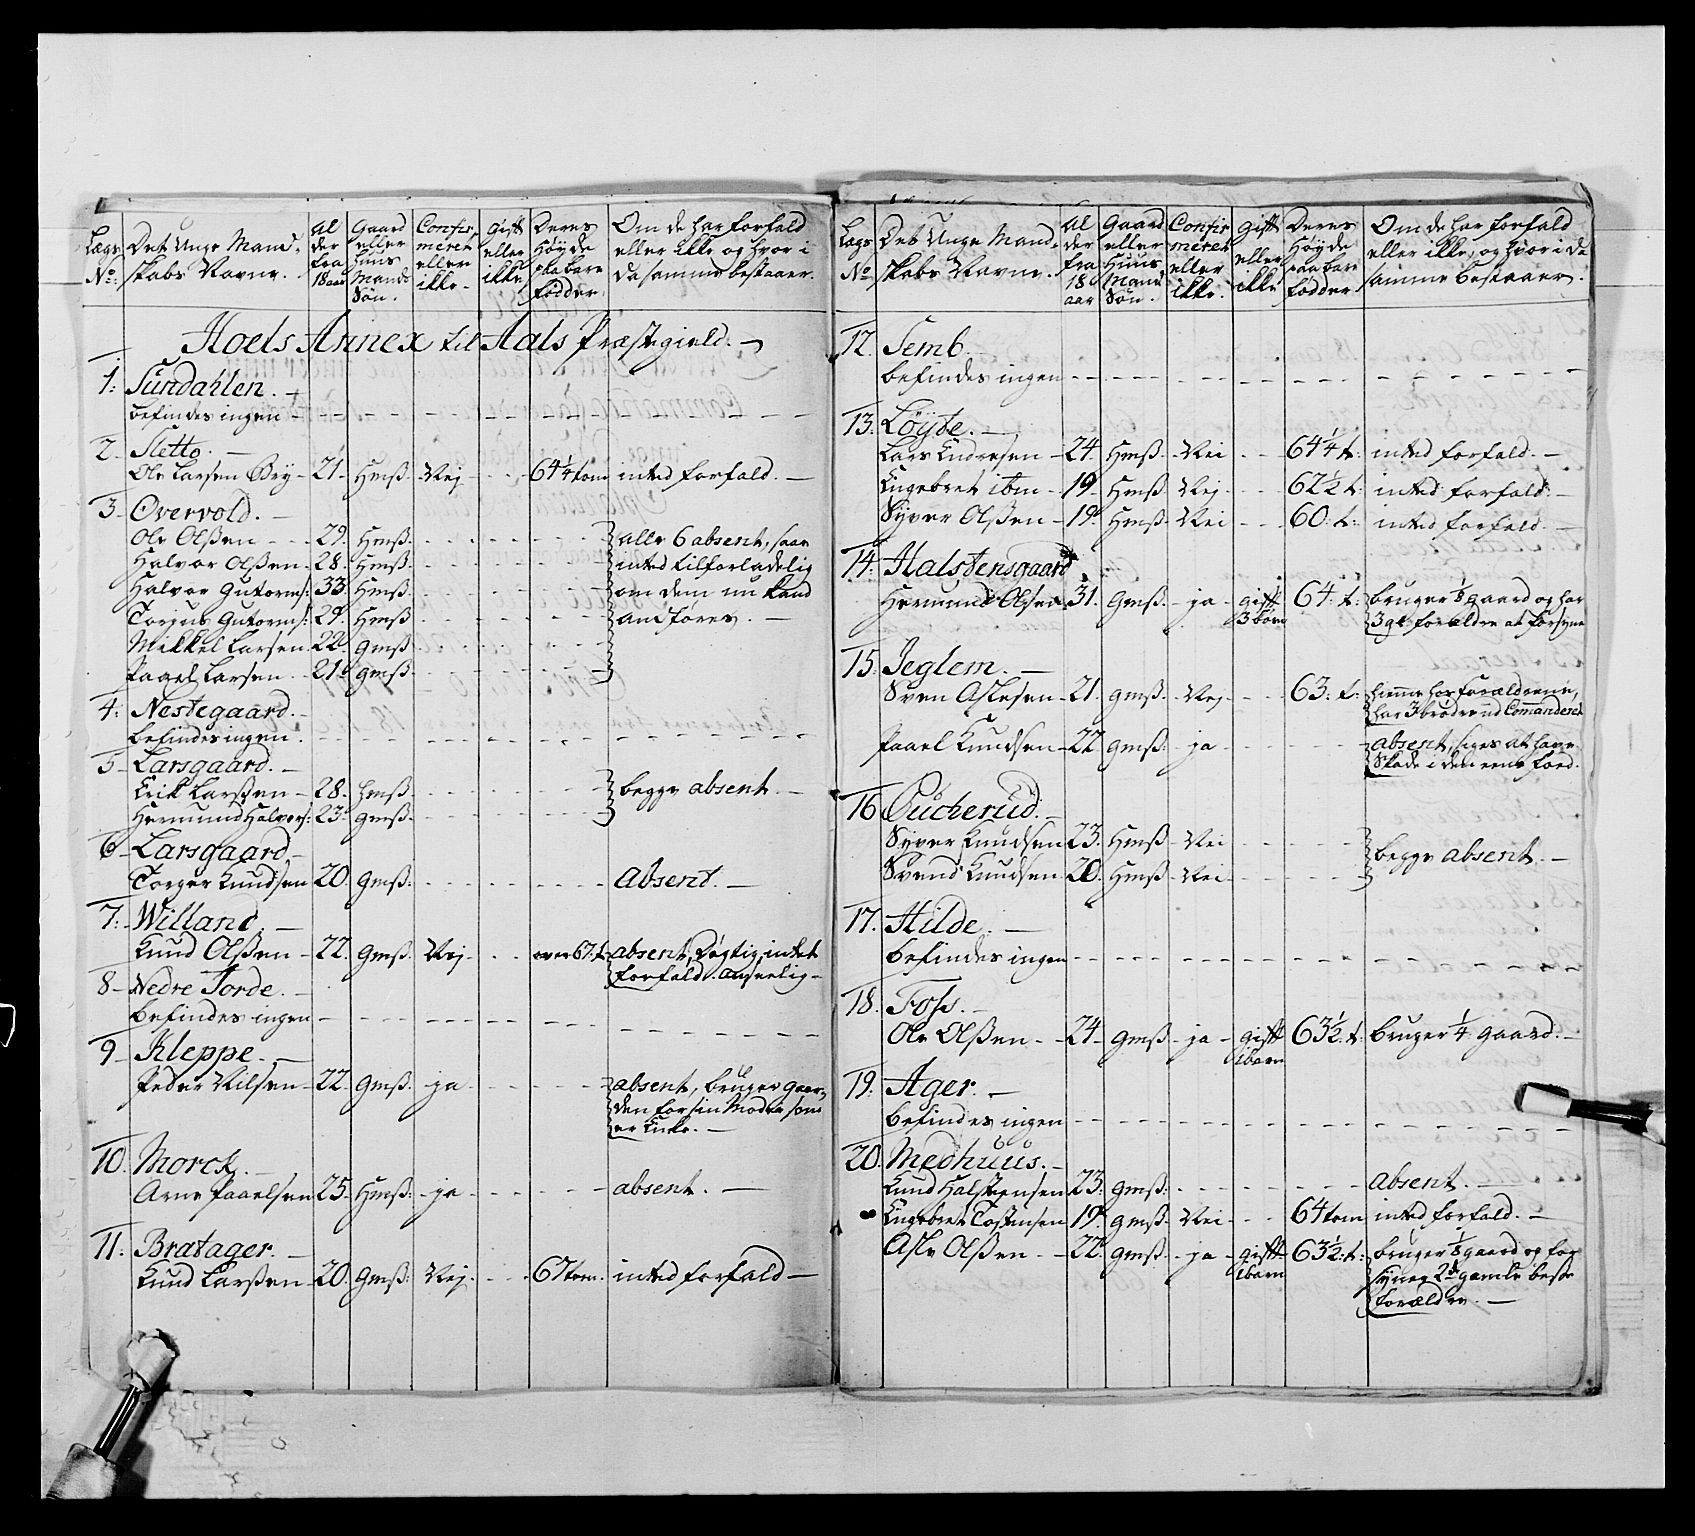 Lægs No: Det Unge Mand-skabs Navne. Al der fra 18 aar Gaard eller Huus Mands Søn. Confir meret eller ikke. gift eller ikke Deres Høyde paa bare födder Om de har forfald eller ikke og hvor i da samme bestaaer.
Hoels Annex til Aals Præstegield.
1: Sundahlen.
befindes ingen
2. Sletto.
Ole Larsen Bry 21. Hmß. Nej 64 1/4 tom inted forfald.
3. Overvold.
Ole Olßen 29. Hmß. alle 6 absent, saa
Halvor Olßen 28. Hmß. inted tilforladelig
Halvor Gutorms: 33. Hmß. om dem nu kand
Torjus Gutorms: 29. Hmß anføres.
Mikkel Larsen 22. gmß.
Paael Larsen 21. gmß.
4. Nestegaard.
befindes ingen.
5. Larsgaard.
Erik Larßen 28. hmß. begge absent.
Hermund Halvors: 23. gmß.
6. Larsgaard.
Torger Knudsen 20. gmß: Absent.
7. Willand.
Knud Olßen 22. gmß. Nej over 67. t. absent, Døgtig, intet
forfald. anseelig
8. Nedre Jorde.
befindes ingen
9. Kleppe.
Peder Nilsen 22. gmß. ja absent, bruger gaar-
den for sin Moder som
er Enke.
10. Morck.
Arne Paaelsen 25. Hmß: ja absent.
11. Bratager.
Knud Larßen 20. Gmß: Nej 67 tom. inted forfald
Lægs No Det Unge Mand-skabs Navne. Al der fra 18 aar Gaard eller Huus Mans Søn. Confir meret eller ikke. gift eller ikke Deres Høyde paa bare födder Om de har forfald eller ikke, og hvor i da samme bestaaer.
12. Semb.
befindes ingen
13. Løyte.
Lars Endresen 24. Hmß. Nei 64 1/4 t. inted forfald.
Engebret ibm 19. Hmß. Nej 62 1/2 t: inted forfald.
Syver Olßen 19. Hmß. Nei 60. t: inted forfald.
14. Halstensgaard
Hermund Olßen 31. Gmß. ja gift 64. t: bruger 1/8 gaard og har
3 børn 3 gl: forældre at forsyne
15. Jeglem.
Sven Aslesen 21. gmß. Nej 63. t. hiemme hos forældrene,
har 3 brødre ud Commanderet
Paael Knudsen 22 gmß: ja absent, siges at have
Skade i den eene foed.
16. Oucherud.
Syver Knudsen 23. Hmß. Nei begge absent.
Svend Knudsen 20. Hmß. Nei
17. Hilde.
befindes ingen
18. Foss.
Ole Olßen 24. gmß. ja gift 63 1/2: t. bruger 1/4 gaard.
1 barn
19. Ager.
befindes ingen
20. Medhuus.
Knud Halstensen 23. gmß: absent.
Engebret Tostensen 19. gmß. Nei 64 tom inted forfald.
Asle Olßen 22. gmß. ja gift 63 1/2: t: bruger 1/8 gaard og for
1 barn syner 2de gamle beste
forældre.